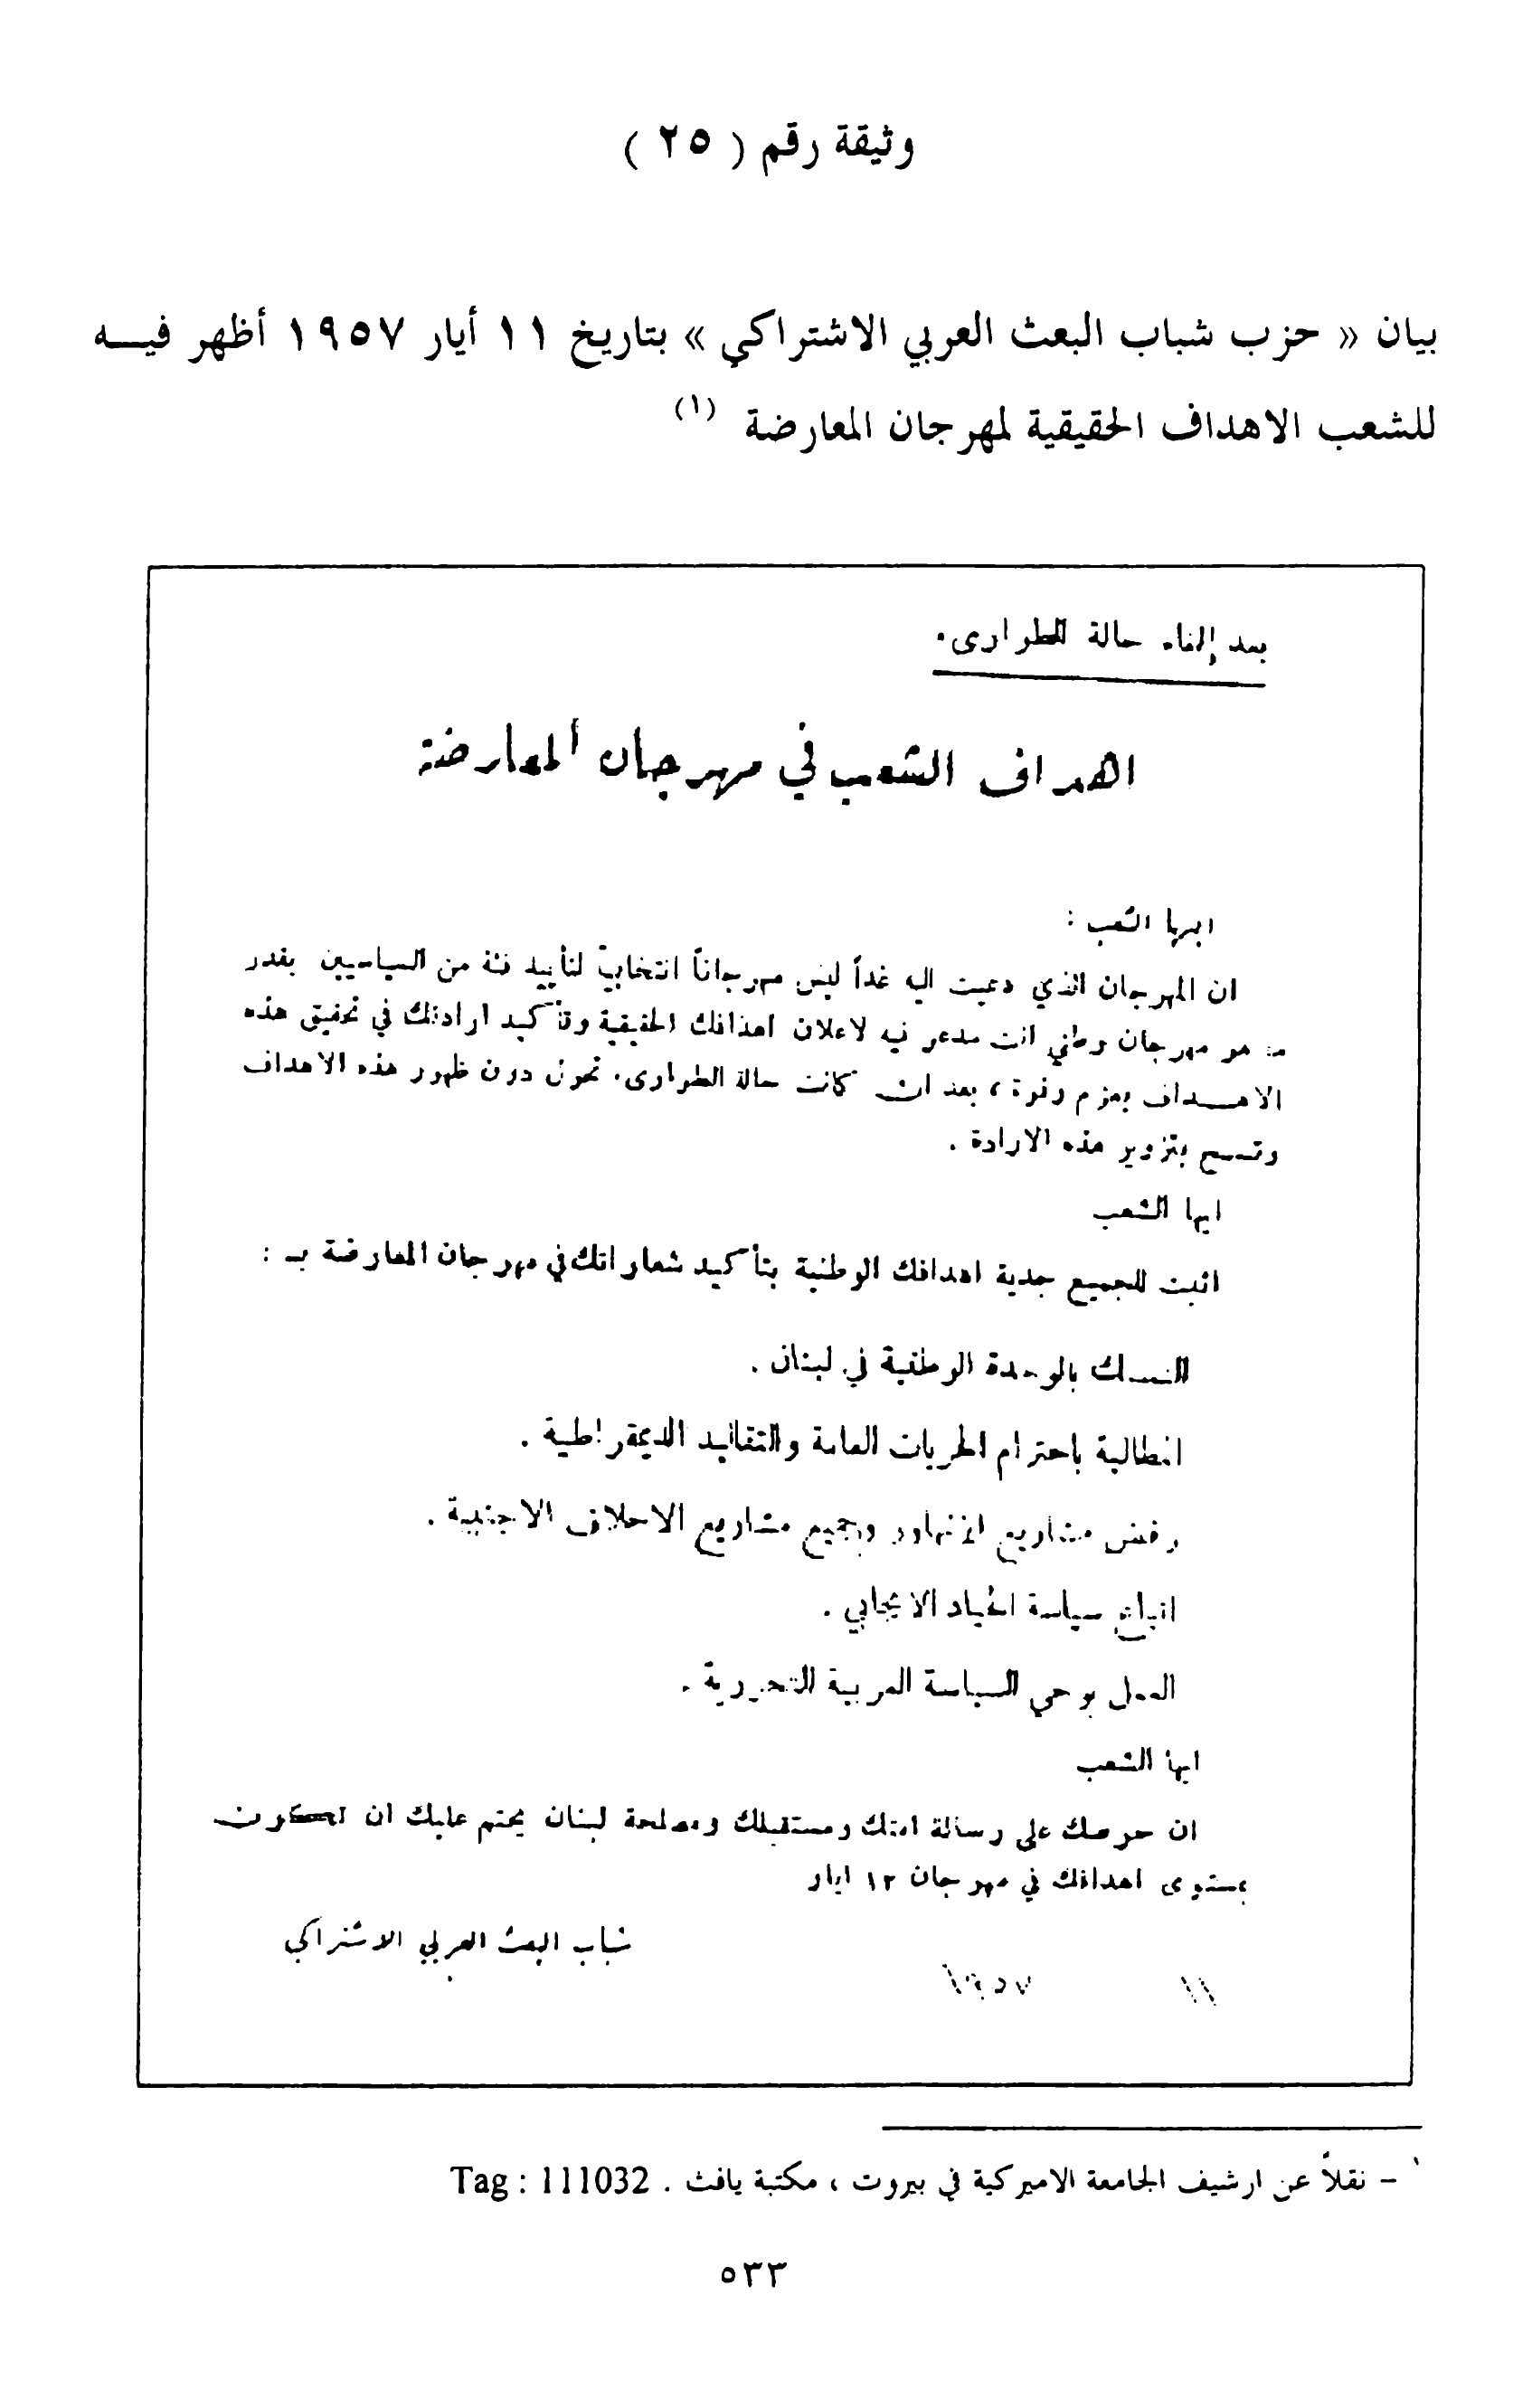 وثيقة رقم ( ٢٥ )
بيان « حزب شباب البعث العربي الاشتراكي » بتاريخ ١١ أيار ١٩٥٧ أظهر فيـــه
للشعب الاهداف الحقيقية لمهرجان المعارضة (١)
بعد إلغاء حالة الطوارىء
اهداف الشعب في مهرجان المعارضة
ايها الشعب :
ان المهرجان الذي دعيت اليه غداً ليس مهرجاناً انتخابيّ لتأييد فئة من السياسيين بقدر
ما هو مهرجان وطني انت مدعو فيه لاعلان اهدافك الحقيقية وتأكيد ارادتك في تحقيق هذه
الاهـــداف بعزم وقوة ، بعد ان كانت حالة الطوارىء تحول دون ظهور هذه الاهداف
وتسمح بتزوير هذه الارادة .
ايها الشعب
اثبت للجميع جدية اهدافك الوطنية بتأكيد شعاراتك في مهرجان المعارضة بـ :
التمسك بالوحدة الوطنية في لبنان .
المطالبة باحترام الحريات العامة والتقاليد الديمقراطية .
رفض مشاريع ايزنهاور وجميع مشاريع الاحلاف الاجنبية .
اتباع سياسة الحياد الايجابي .
العمل بوحي السياسة العربية التحررية .
ايها الشعب
ان حرصك على رسالة امتك ومستقبلك ومصلحة لبنان يحتم عليك ان تكون
بمستوى اهدافك في مهرجان ١٢ ايار
شباب البعث العربي الاشتراكي
١١ ١٩٥٧
١ - نقلاً عن ارشيف الجامعة الاميركية في بيروت ، مكتبة يافث . Tag : 111032
٥٣٣